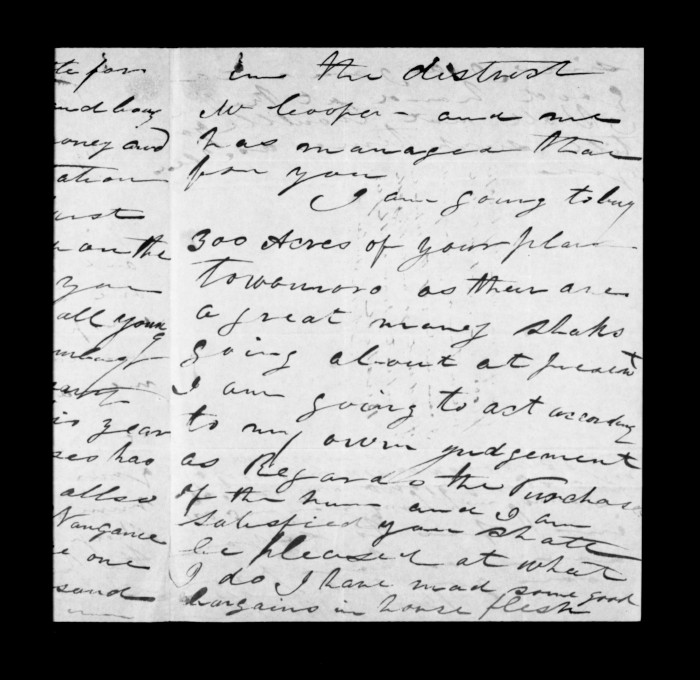 te for
and buy
oney and
ation
urst
n on the
you
all young
is year
ses has
allso
e one
sand
in the district
Mr Cooper - and me
has managed that
for you
I am going to buy
300 Acres of your plan
towmoro as their are
a great maney shaks
going about at present
I am going to act according
to my own judgement
as Regards the Purchase
of the and I am
satisfied your shall
be pleased at what
I do I have mad some good
bargains in horse flesh